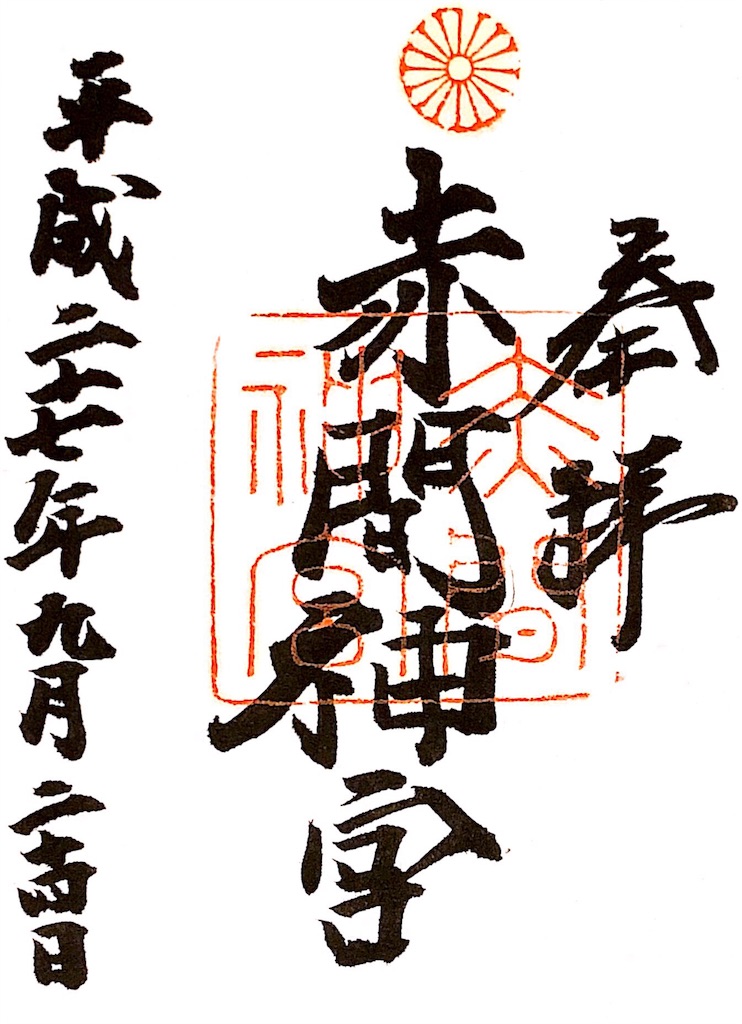 奉拝
赤間神宮
赤間神宮
平成二十七年九月二十四日